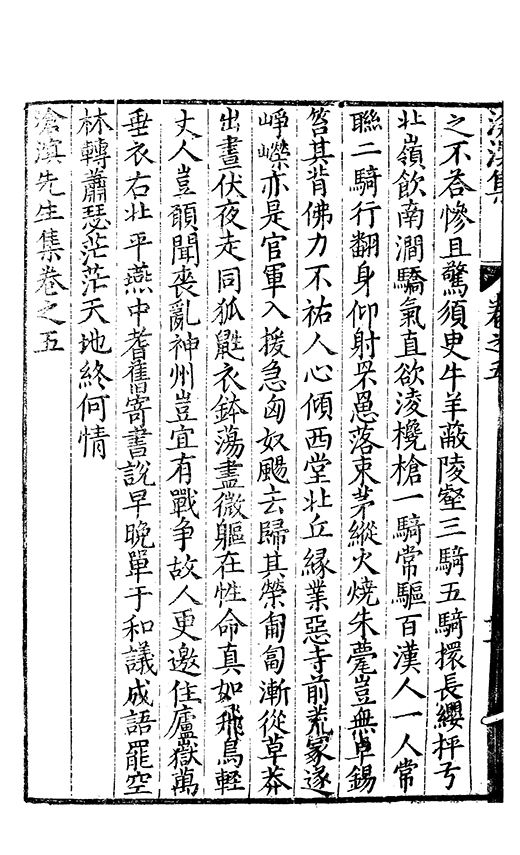 滄溟集 卷之五
之不答慘且驚須臾牛羊蔽陵壑三騎五騎擐長纓抨弓
北嶺飲南澗驕氣直欲淩欃槍一騎常驅百漢人一人常
聯二騎行翻身仰射罘罳落束茅縱火燒朱甍豈無卓錫
笞其背佛力不祐人心傾西堂北丘緣業惡寺前荒冢遂
崢嶸亦是官軍入援急匈奴颺去歸其榮匍匐漸從草莽
出晝伏夜走同狐鼪衣鉢蕩盡微軀在性命真如飛鳥輕
丈人豈願聞喪亂神州豈宜有戰爭故人更邀住廬嶽萬
垂衣右北平燕中耆舊寄書說早晚單于和議成語罷空
林轉蕭瑟茫茫天地終何情
滄溟先生集卷之五